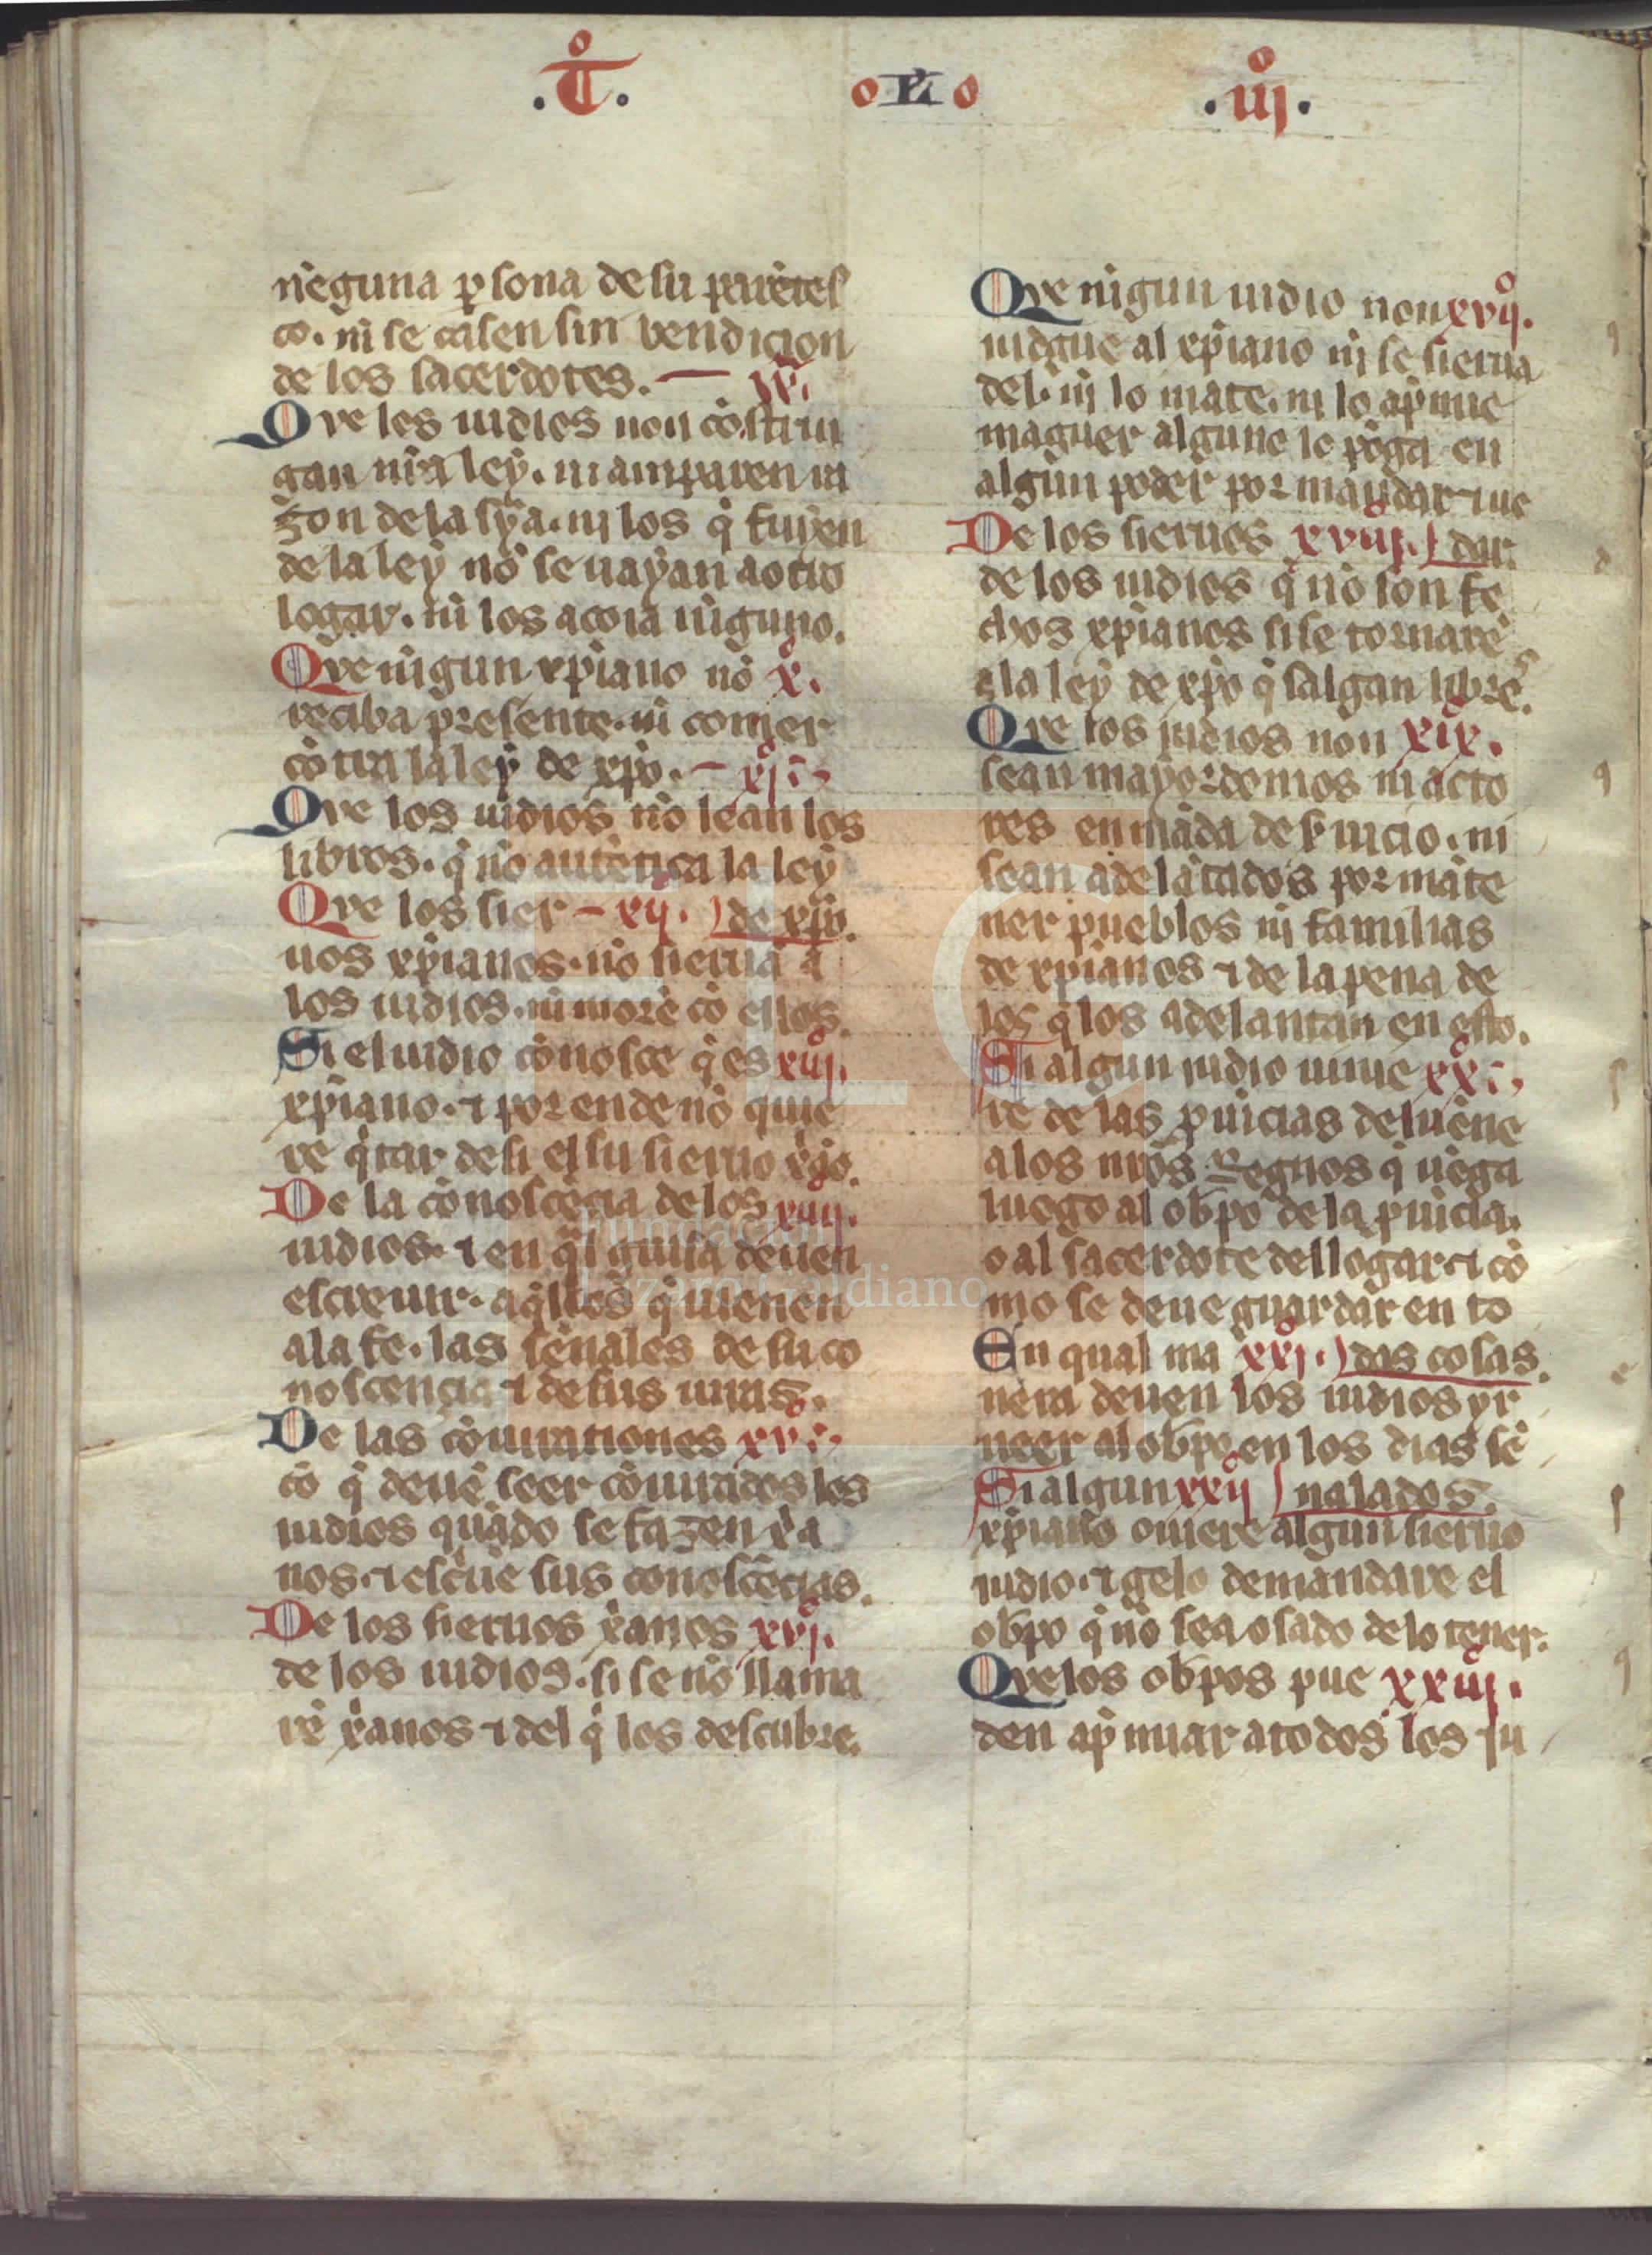 .T̊. oLo .iij̊.
nĩguna ꝑsona de su parẽtes
co. ni se casen sin bendicion
de los sacerdotes. —
Que los iudios non cõstrin
gan nr̃a ley. ni amparen ra
zon de la sya. nj los q̃ fuyen
de la ley nõ se uayan a otro
logar. nĩ los acoia nĩguno.
Que nĩgun xp̃iano nõ x̊.
reciba presente. nĩ comer
cõtra la ley de xp̃o. — xj̊
Que los iudios nõ lean los
libros. q̃ nõ autẽtica la ley
Que los sier — xij̊. ) de xp̃o.
uos xp̃ianos. nõ sieruã a
los iudios. nĩ morẽ cõ ellos.
Si el iudio cõnosce q̃ es xiij̊.
xp̃iano. ⁊ por ende nõ quie
re q̃tar de si el su sieruo xp̃o.
De la cõnoscẽcia de los xiiij̊.
iudios. ⁊ en q̃l guisa deuen
escreuir. aq̃llos q̃ uienen
a la fe. las señales de su co
noscencia ⁊ de sus iuras.
De las cõiurationes xv̊
cõ q̃ deuẽ seer cõiurados los
iudios quãdo se fazen xp̃ia
nos. ⁊ escriuẽ sus conoscẽcias.
De los sieruos xp̃ianos xvj̊.
de los iudios. si se nõ llama
rẽ xp̃ianos ⁊ del q̃ los descubre.
Que nĩgun iudio non xvij̊.
iudgue al xp̃iano nj se sierua
del. nj lo mate. nj lo ap̃mie
maguer alguno lo põga en
algun poder por mandar ⁊ ue
De los sieruos xviij̊. ) dar.
de los iudios q̃ nõ son fe
chos xp̃ianos si se tornarẽ
a la ley de xp̃o q̃ salgan librẽs.
Que los iudios non xix̊.
sean mayordomos ni acto
res en mãda de seruicio. ni
sean adelãtados por mãte
ner pueblos nj familias
de xp̃ianos ⁊ de la pena de
los q̃ los adelantan en esto.
Si algun iudio uinie xx̊
re de las ꝓuĩcias de luẽne
a los nr̃os Regnos q̃ uẽga
luego al ob̃po de la ꝓuĩcia.
o al sacerdote dellogar ⁊ cõ
mo se deue guardar en to
En qual ma xxj̊. ) das cosas.
nera deuen los iudios yr
ueer al ob̃po en los dias sẽ
Si algun xxij̊ ) nalados.
xp̃iano ouiere algun sieruo
iudio. ⁊ gelo demandare el
ob̃po q̃ nõ sea osado de lo tener.
Que los ob̃pos pue xxiij̊.
den ap̃miar a todos los ju
FLG
Fundación
Lázaro Galdiano